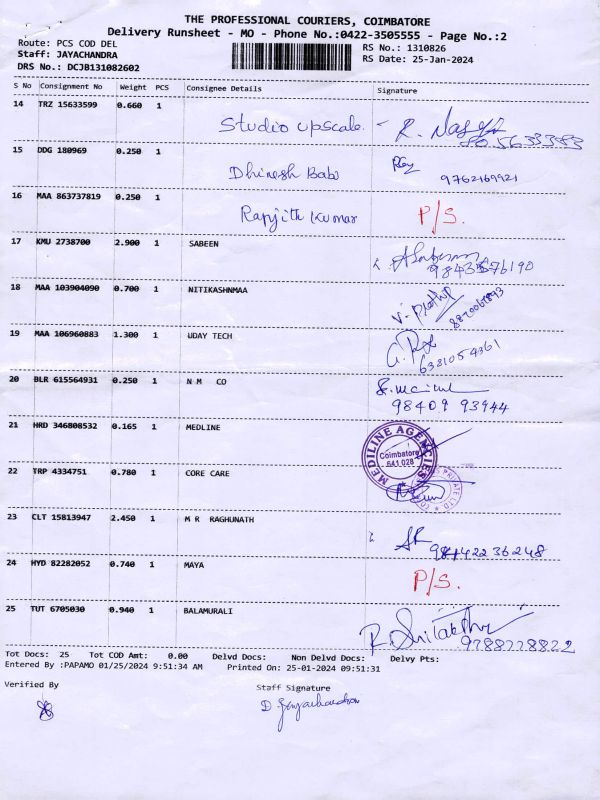 THE PROFESSIONAL COURIERS, COIMBATORE
Delivery Runsheet - MO - Phone No.:0422-3505555 - Page No.:2
Route: PCS COD DEL RS No.: 1310826
Staff: JAYACHANDRA RS Date: 25-Jan-2024
DRS No.: DCJB131082602
S No Consignment No Weight PCS Consignee Details Signature
14 TRZ 15633599 0.660 1
Studio upscale.
15 DDG 180969 0.250 1
Dhinesh Babu 9762169921
16 MAA 863737819 0.250 1
Ranjith Kumar P/S.
17 KMU 2738700 2.900 1 SABEEN
18 MAA 103904090 0.700 1 NITIKASHNMAA
19 MAA 106960883 1.300 1 UDAY TECH
6381054361
20 BLR 615564931 0.250 1 N M CO
98409 93944
21 HRD 346808532 0.165 1 MEDLINE
MEDILINE AGENCIES
Coimbatore
641 028
22 TRP 4334751 0.780 1 CORE CARE
23 CLT 15813947 2.450 1 M R RAGHUNATH
24 HYD 82282052 0.740 1 MAYA
P/S.
25 TUT 6705030 0.940 1 BALAMURALI
9788778822
Tot Docs: 25 Tot COD Amt: 0.00 Delvd Docs: Non Delvd Docs: Delvy Pts:
Entered By :PAPAMO 01/25/2024 9:51:34 AM Printed On: 25-01-2024 09:51:31
Verified By Staff Signature
D. Jayachandran